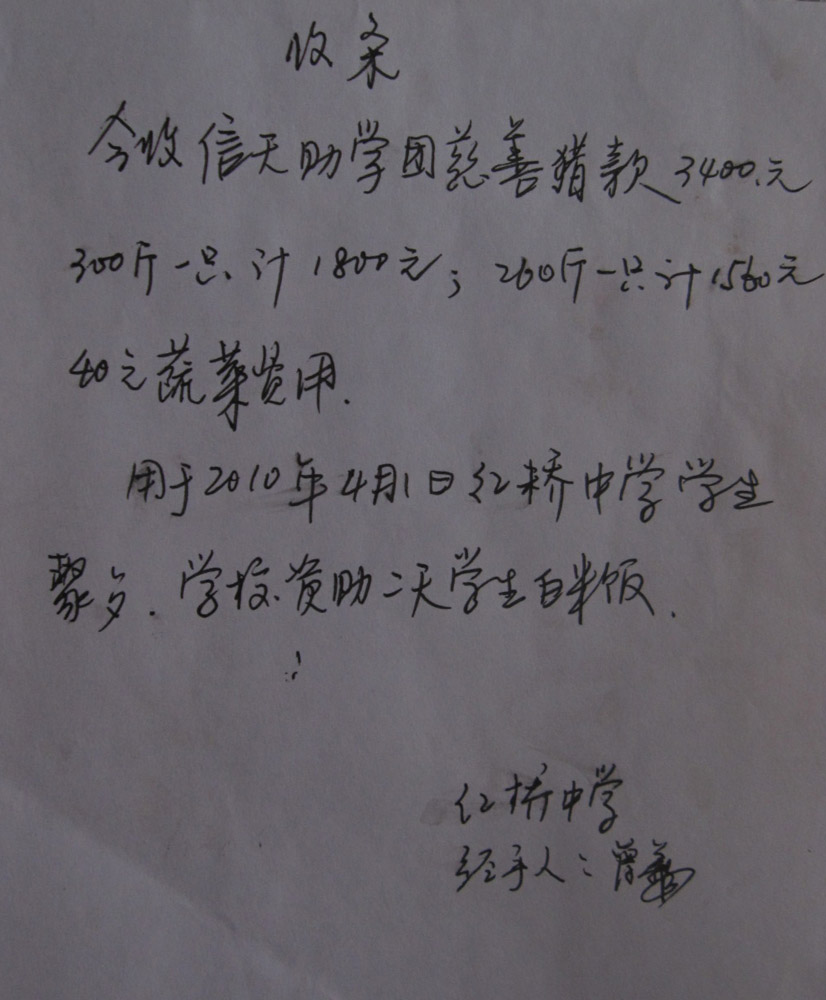 收条
今收信天助学团慈善猪款3400.元
300斤一只计1800元；260斤一只计1560元
40元蔬菜费用.
用于2010年4月1日红桥中学学生
聚歺.学校资助二天学生白米饭.
红桥中学
经手人：曾